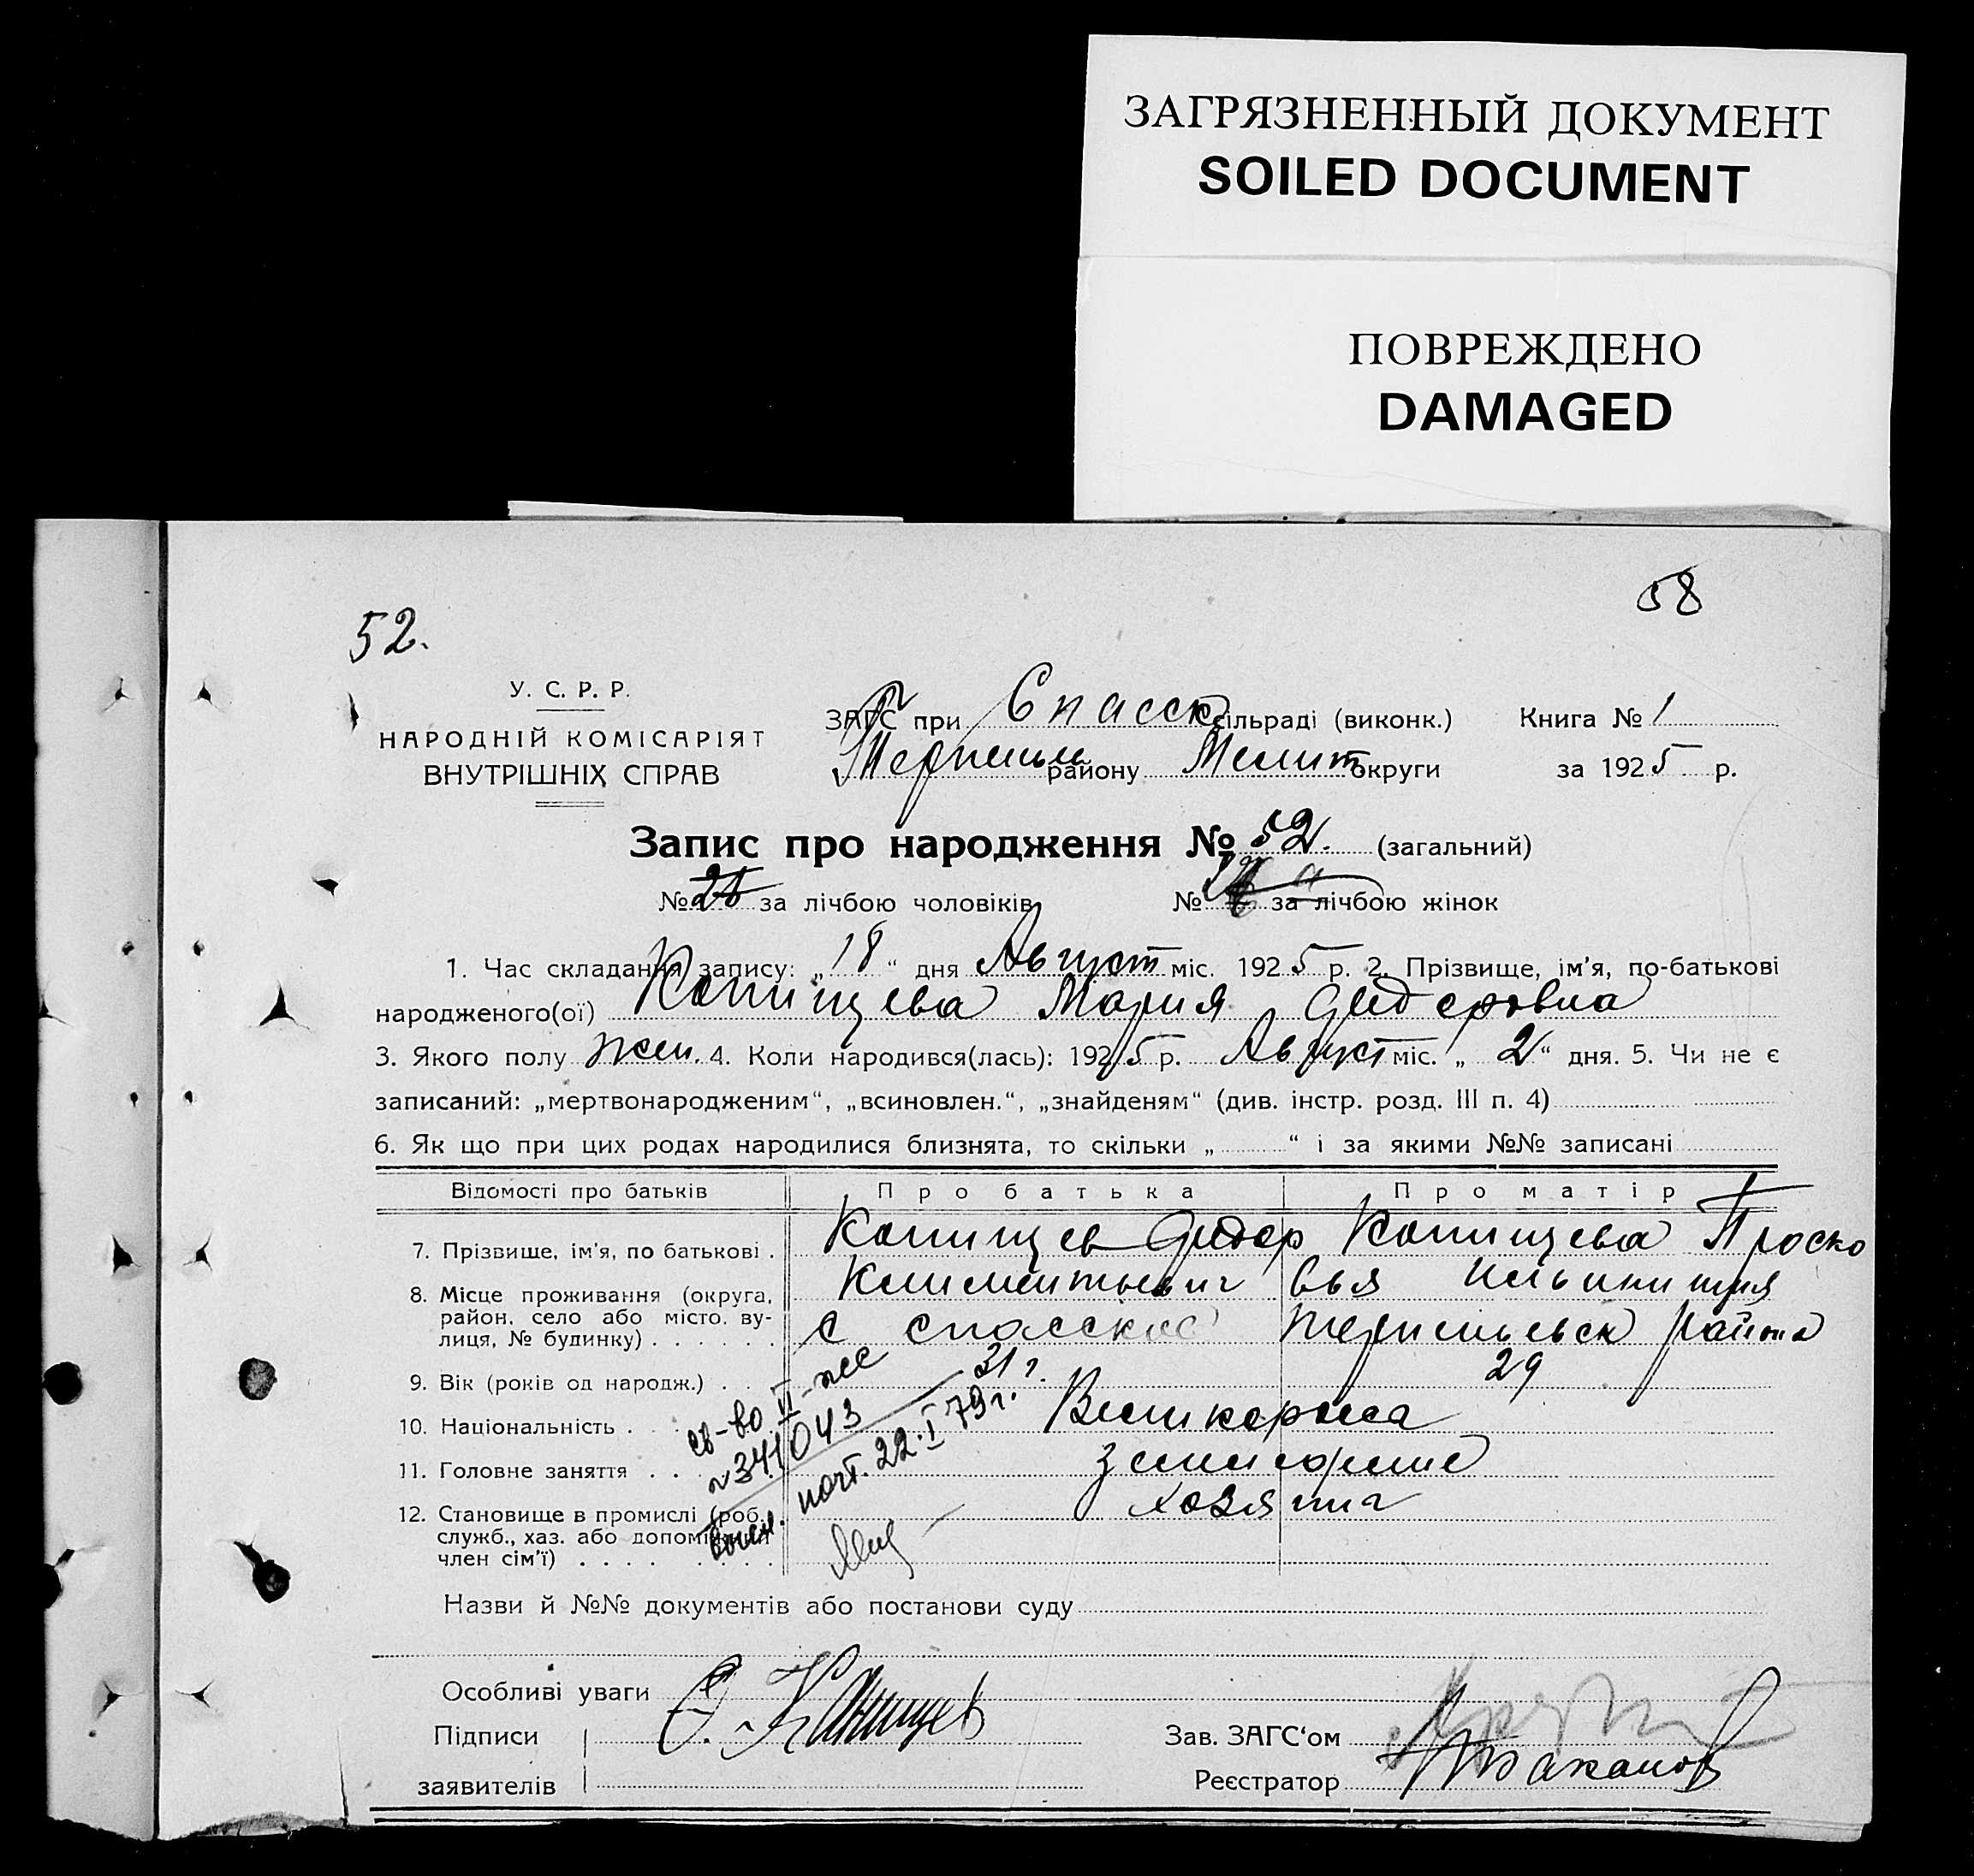 ЗАГРЯЗНЕННЫЙ ДОКУМЕНТ
SOILED DOCUMENT
ПОВРЕЖДЕНО
DAMAGED
58
52.
У. С. Р. Р.
НАРОДНІЙ КОМІСАРІЯТ
ВНУТРІШНІХ СПРАВ
ЗАГС при Спасск сільраді (виконк.) Книга № 1
району Мелит округи за 1925 р.
Запис про народження № 52. (загальний)
№ за лічбою чоловіків № за лічбою жінок
1. Час складання запису: „18“ дня Август міс. 1925 р. 2. Прізвище, ім'я, по-батькові
народженого(ої) Мария
3. Якого полу жен. 4. Коли народився(лась): 1925 р. Август міс. „2“ дня. 5. Чи не є
записаний: „мертвонародженим“, „всиновлен.“, „знайденям“ (див. інстр. розд. III п. 4)
6. Як що при цих родах народилися близнята, то скільки „ “ і за якими №№ записані
Відомості про батьків Про батька Про матір
7. Прізвище, ім'я, по батькові . Проско
Климентьевич вья Ильинишня
8. Місце проживання (округа,
район, село або місто, ву-
лиця, № будинку) . . . . . . с спасское района
9. Вік (років од народж.) . 31 г. 29
10. Національність .
11. Головне заняття . .
12. Становище в промислі (роб.,
служб., хаз. або допоміжний
член сім'ї) . . . . хозяин
св-во II-жс
№ 341043
высл. почт. 22.I 79 г.
Назви й №№ документів або постанови суду
Особливі уваги
Підписи
заявителів
Зав. ЗАГС'ом
Реєстратор